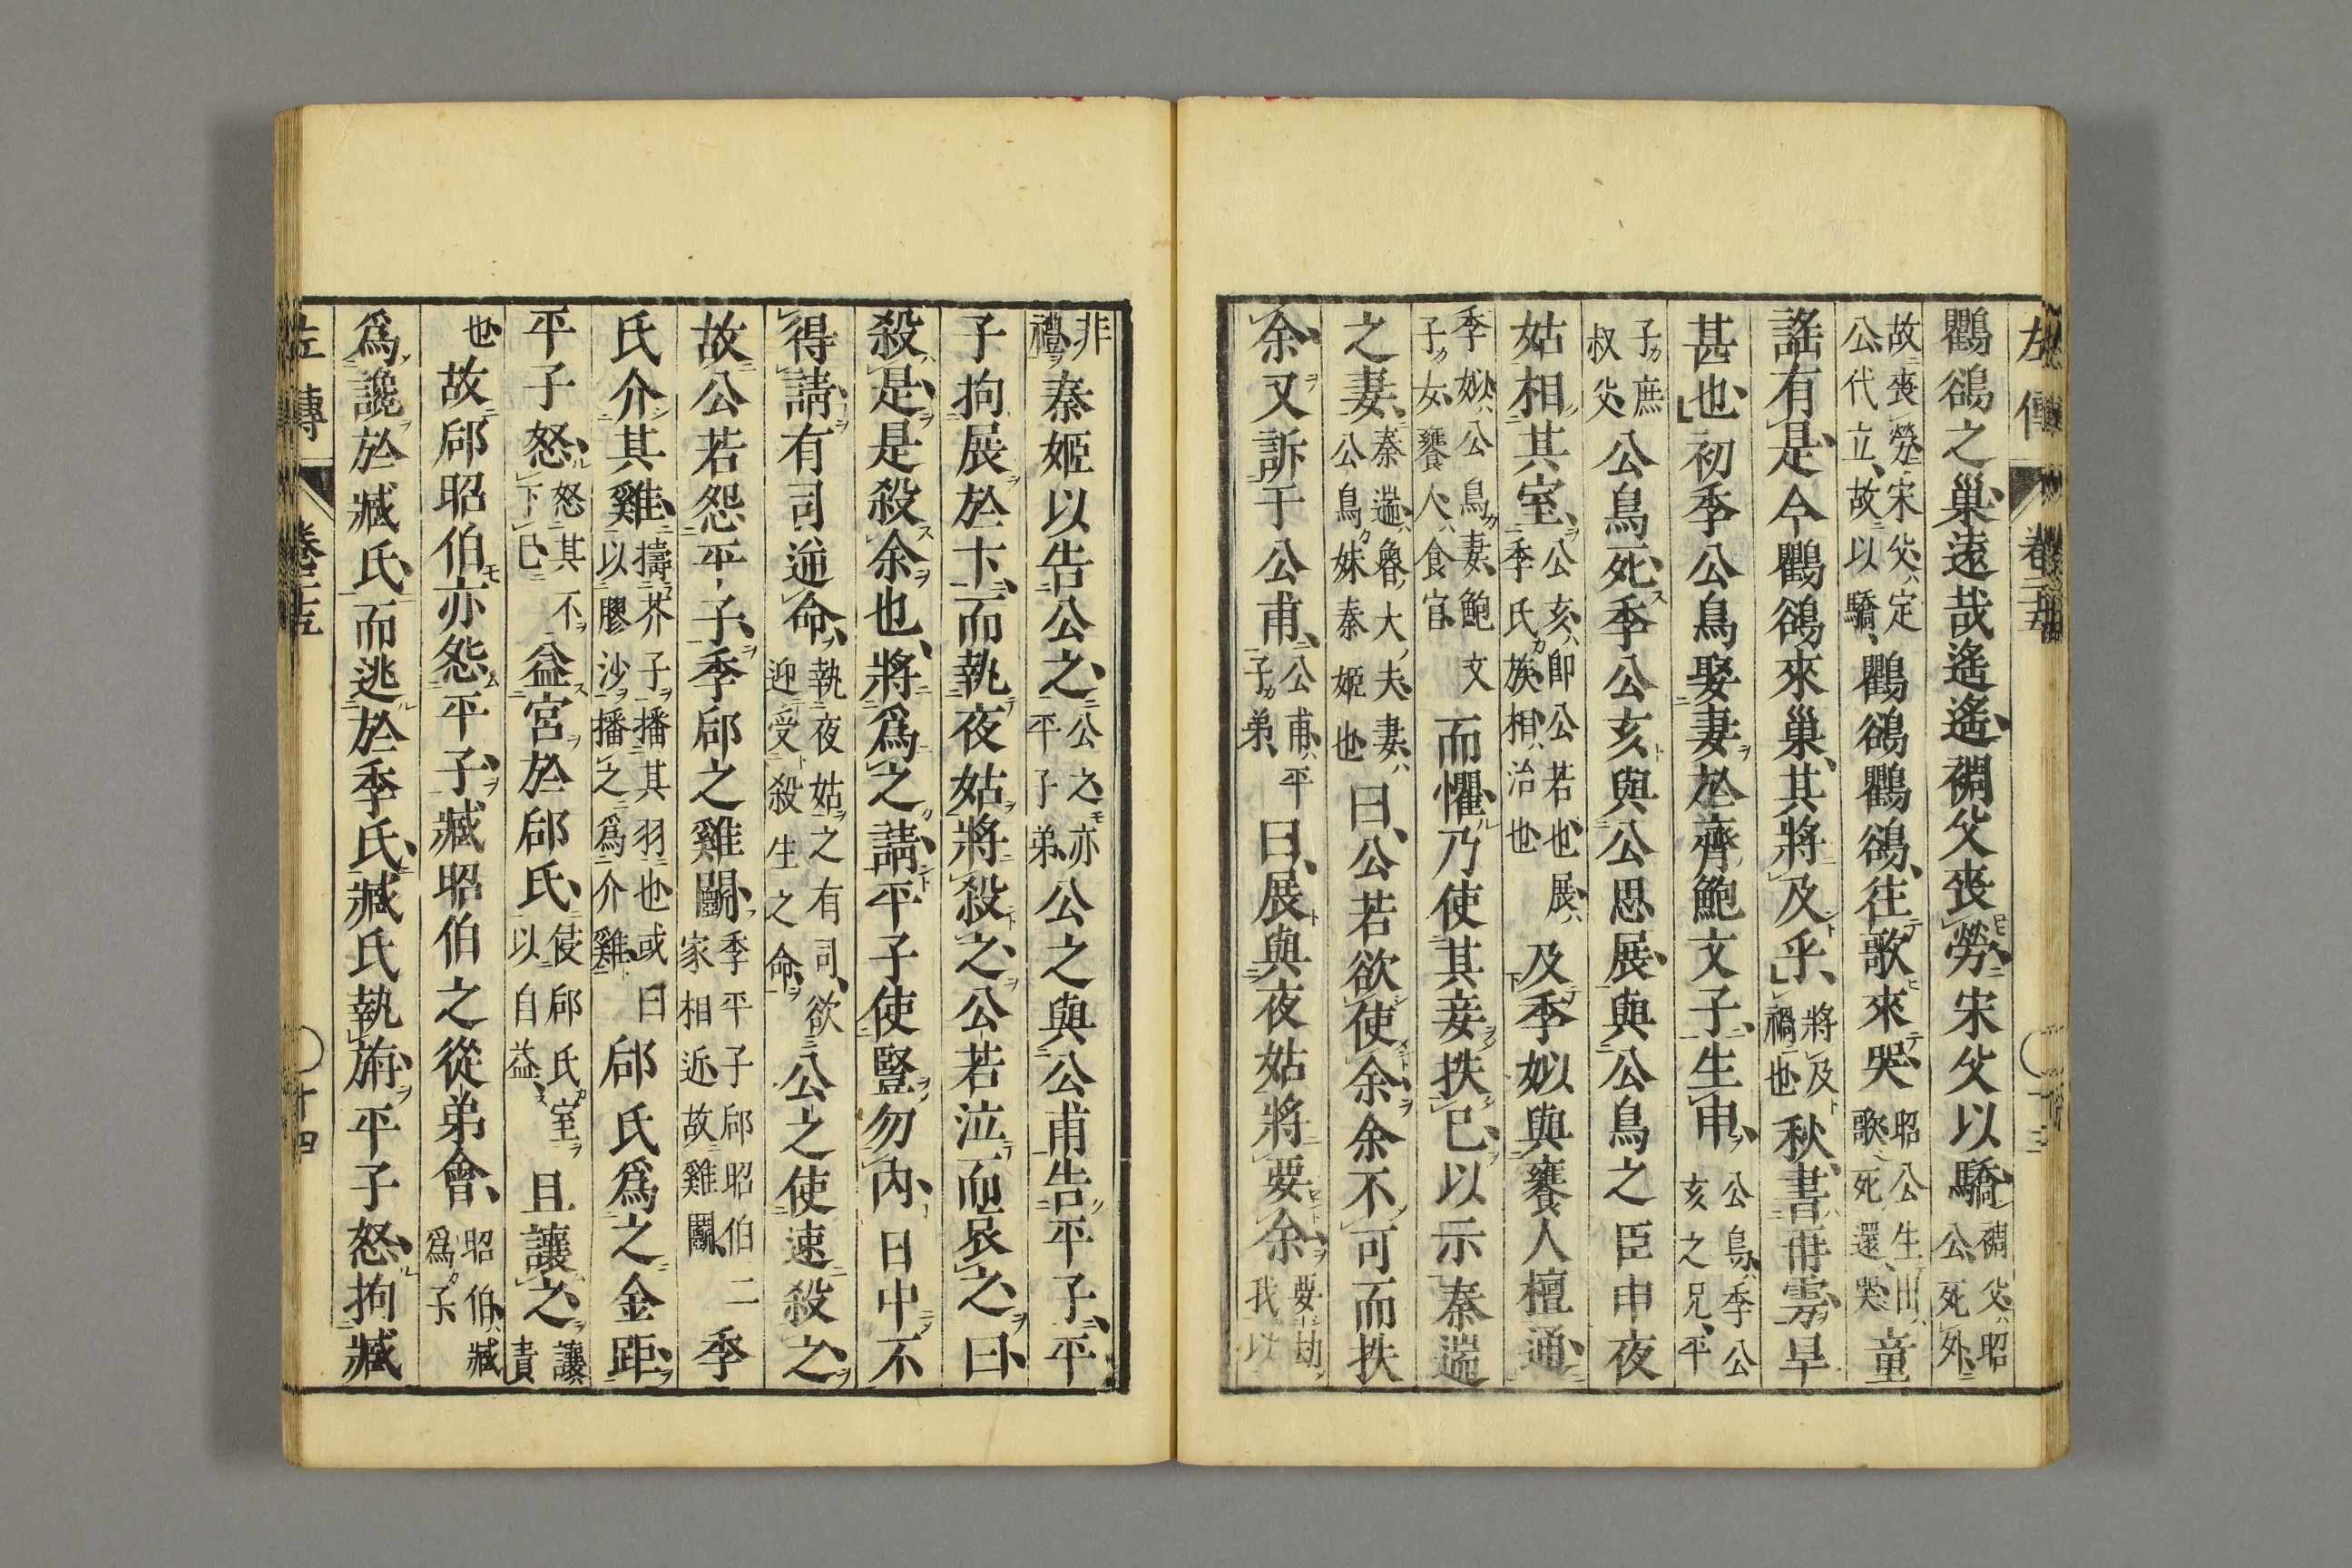 左傳 卷二十五 十三
鸜鵒之巢遠哉遙遙裯父喪勞宋父以驕裯父昭公死外
故喪勞宋父定公代立故以驕鸜鵒鸜鵒往歌來哭昭公生出歌死還哭童
謠有是今鸜鵒來巢其將及乎將及禍也秋書再雩旱
甚也初季公鳥娶妻於齊鮑文子生申公鳥季公亥之兄平
子庶叔父公鳥死季公亥與公思展與公鳥之臣申夜
姑相其室公亥即公若也展季氏族相治也及季姒與饔人檀通
季姒公鳥妻鮑文子女饔人食官而懼乃使其妾抶己以示秦遄
之妻秦遄魯大夫妻公鳥妹秦姬也曰公若欲使余余不可而抶
余又訴于公甫公甫平子弟曰展與夜姑將要余要劫我以
非禮秦姬以告公之公之亦平子弟公之與公甫告平子平
子拘展於卞而執夜姑將殺之公若泣而哀之曰
殺是是殺余也將爲之請平子使豎勿內日中不
得請有司逆命執夜姑之有司欲迎受殺生之命公之使速殺之
故公若怨平子季郈之雞鬭季平子郈昭伯二家相近故雞鬭季
氏介其雞擣芥子播其羽也或曰以膠沙播之爲介雞郈氏爲之金距
平子怒怒其不下己益宮於郈氏侵郈氏室以自益且讓之讓責
也故郈昭伯亦怨平子臧昭伯之從弟會昭伯臧爲子
爲讒於臧氏而逃於季氏臧氏執旃平子怒拘臧
左傳 卷二十五 十四